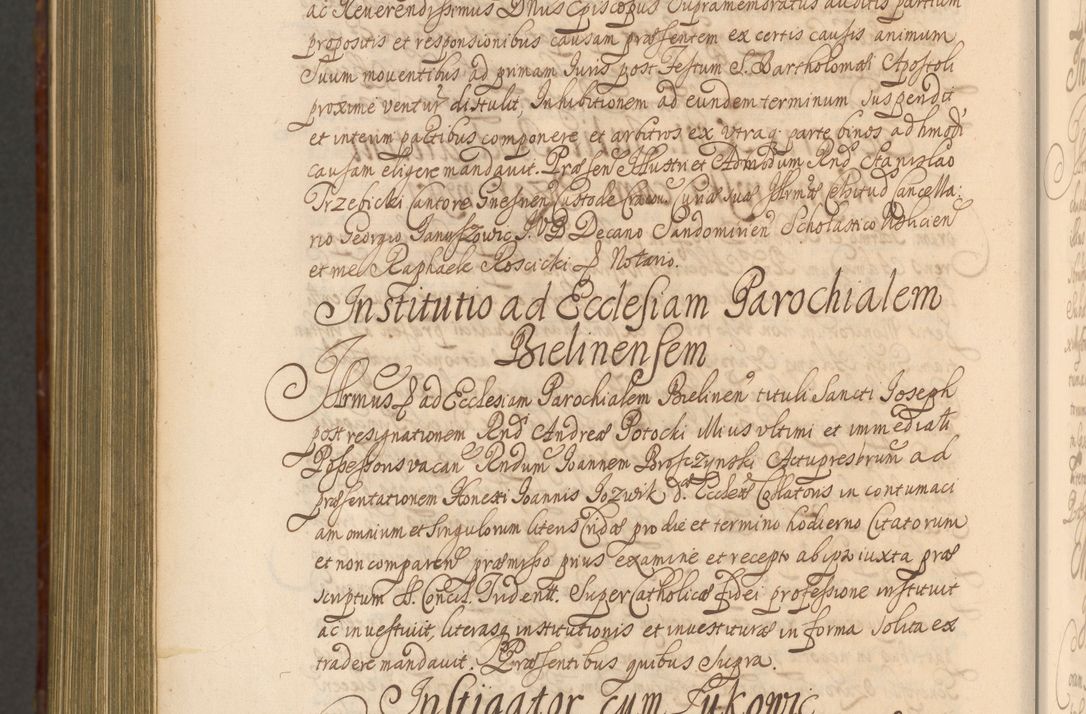 ac Reverendissimus Dnus Episcopus Supramemoratus auditis partium
propositis et responsionibus causam præsentem ex certis causis animum
Suum moventibus ad primam Iuris post Festum S. Bartholomæi Apostoli
proxime ventur distulit, Inhibitionem ad eundem terminum suspendit
et interim partibus componere et arbitros ex utraq parte binos ad hmodi
causam eligere mandavit. Præsen Illustri et Admodum Rnd Stanislao
Trzebicki Cantore Gnesnen Custode Cracou. Curiæ suæ Cancella:
rio Georgio Janyszowic I.V.D. Decano Sandomirien Scholastico Kelicien
et me Raphaele Roscicki Notario.
Institutio ad Ecclesiam Parochialem
Bielinensem
Illrmus ad Ecclesiam Parochialem Bielinen tituli Sancti Joseph
post resignationem Rnd Andreæ Potocki illius ultimi et immediati
Possessoris vacan Rndum Joannem Broszynski Actu presbrum ad
præsentationem Honesti Joannis Jozwik d. Eccleæ Collatoris in contumaci
am omnium et singulorum literis Cridæ pro die et termino hodierno Citatorum
et non comparen præmisso prius examine et recepto ab ipso iuxta præ
scriptum S. Concil. Trident. Super Catholicæ fidei professione instituit
ac investiuit, literasq institutionis et investituræ in forma solita ex
tradere mandavit. Præsentibus quibus supra.
Instigator Cum Zukowic